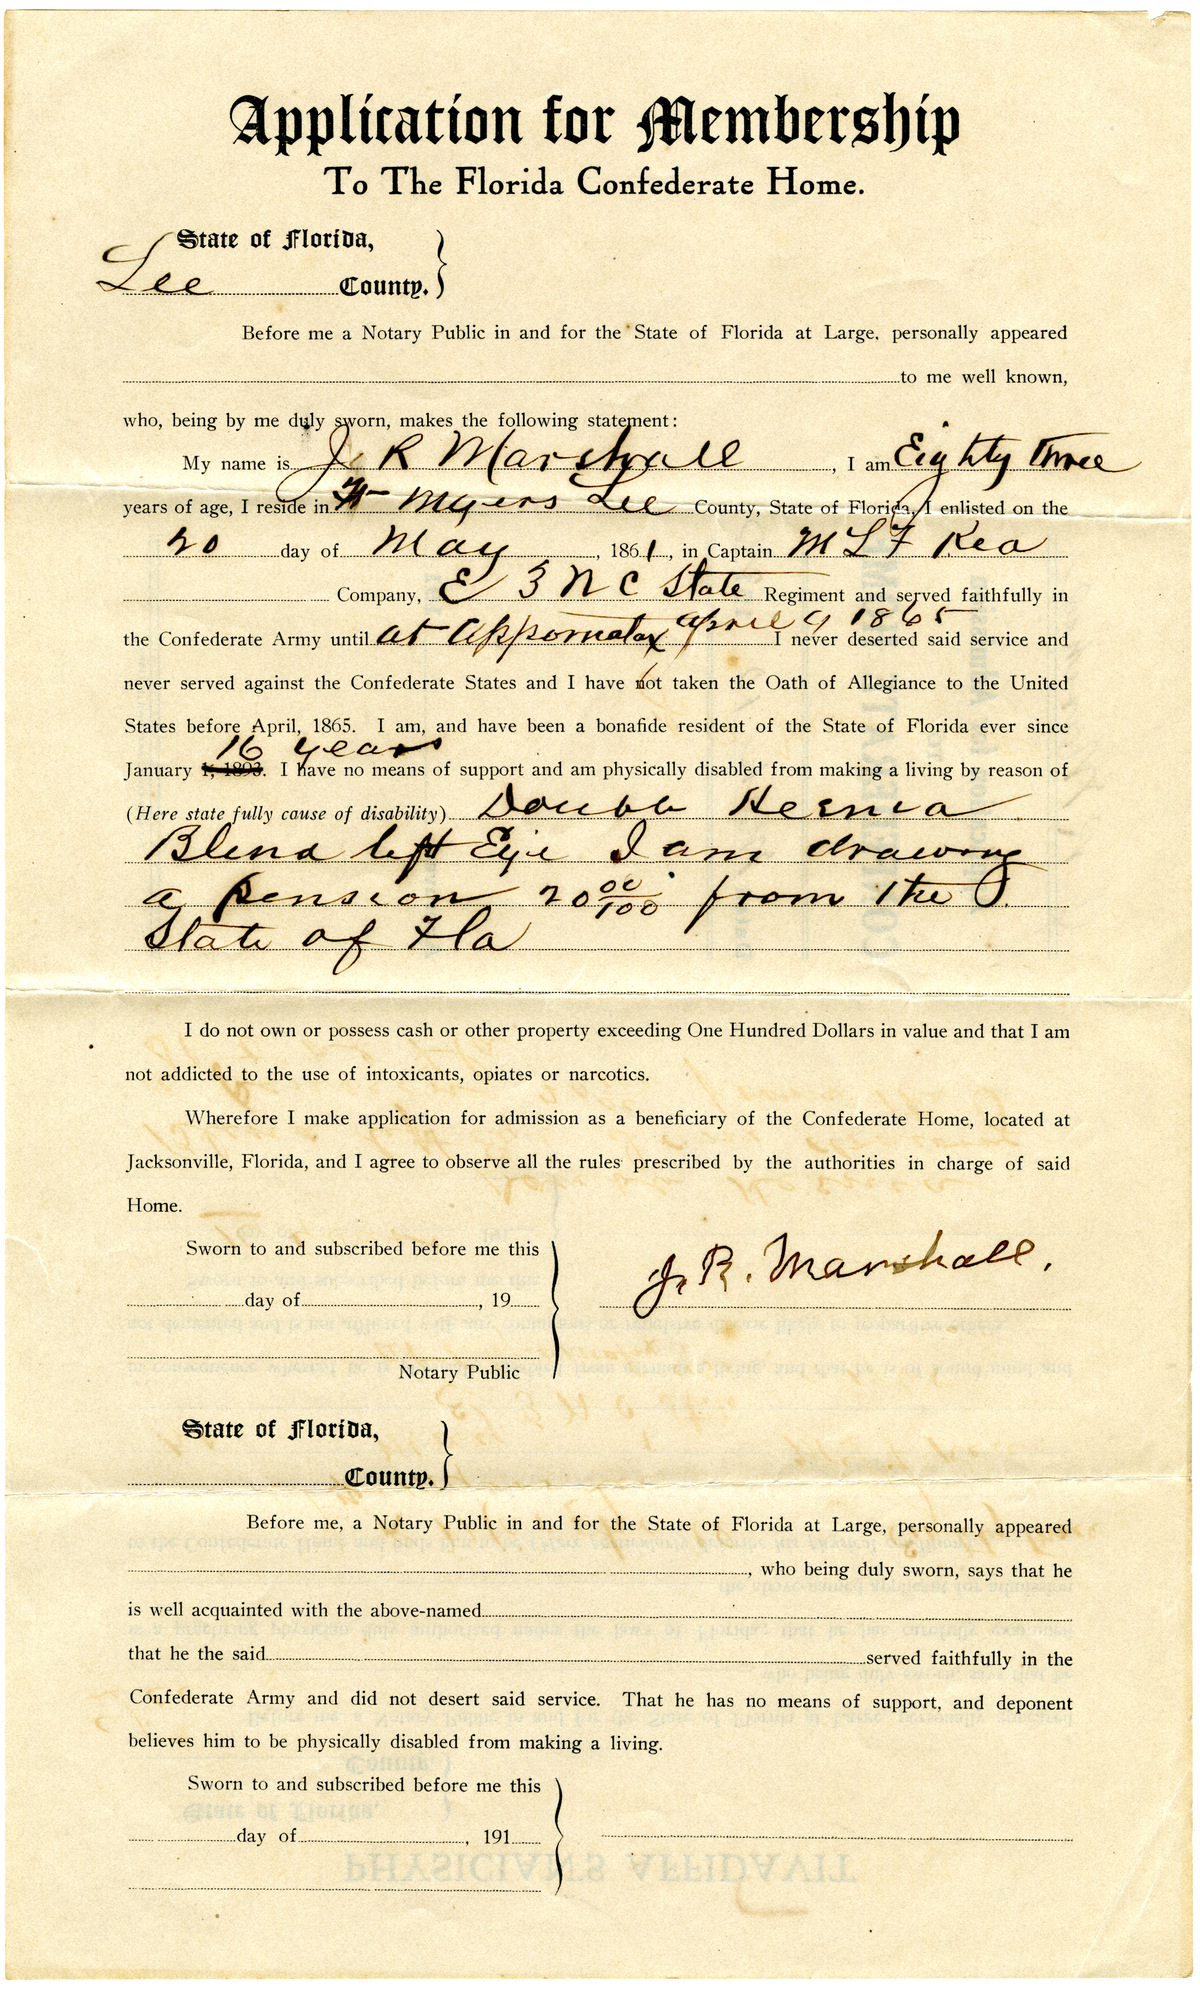 Application for Membership
To The Florida Confederate Home.
State of Florida,
Lee County.
Before me a Notary Public in and for the State of Florida at Large, personally appeared
to me well known,
who, being by me duly sworn, makes the following statement:
My name is J R Marshall, I am Eighty Three
years of age, I reside in Ft Myers Lee County, State of Florida, I enlisted on the
20 day of May, 1861, in Captain M L F Rea
Company, E 3 N C State Regiment and served faithfully in
the Confederate Army until at Appomatox April 9 1865 I never deserted said service and
never served against the Confederate States and I have not taken the Oath of Allegiance to the United
States before April, 1865. I am, and have been a bonafide resident of the State of Florida ever since
16 years
January 1, 1893. I have no means of support and am physically disabled from making a living by reason of
(Here state fully cause of disability) Double Hernia
Blind left Eye I am drawing
a pension 20 00/100 from the
State of Fla
I do not own or possess cash or other property exceeding One Hundred Dollars in value and that I am
not addicted to the use of intoxicants, opiates or narcotics.
Wherefore I make application for admission as a beneficiary of the Confederate Home, located at
Jacksonville, Florida, and I agree to observe all the rules prescribed by the authorities in charge of said
Home.
Sworn to and subscribed before me this
J. R. Marshall.
day of , 19
Notary Public
State of Florida,
County.
Before me, a Notary Public in and for the State of Florida at Large, personally appeared
, who being duly sworn, says that he
is well acquainted with the above-named
that he the said served faithfully in the
Confederate Army and did not desert said service. That he has no means of support, and deponent
believes him to be physically disabled from making a living.
Sworn to and subscribed before me this
day of , 191
PHYSICIAN'S AFFIDAVIT